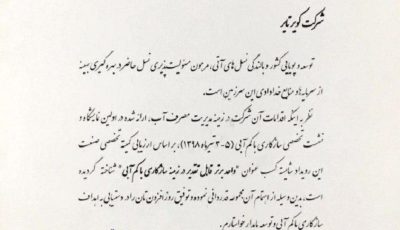 شرکت کویر تایر
توسعه و پویایی کشور و بالندگی نسل های آتی، مرهون مسئولیت پذیری نسل حاضر در بهره گیری بهینه
از سرمایه ها و منابع خدادادی این سرزمین است.
نظر به اینکه اقدامات آن شرکت در زمینه مدیریت مصرف آب، ارائه شده در اولین نمایشگاه و
نشست تخصصی سازگاری با کم آبی (۵-۳ تیرماه ۱۳۹۸)، بر اساس ارزیابی کمیته تخصصی صنعت
این رویداد شایسته کسب عنوان "واحد برتر قابل تقدیر در زمینه سازگاری با کم آبی" شناخته گردیده
است، بدین وسیله از اهتمام آن مجموعه قدردانی نموده و توفیق روز افزون تان را در دستیابی به اهداف
سازگاری با کم آبی و توسعه پایدار خواستارم.